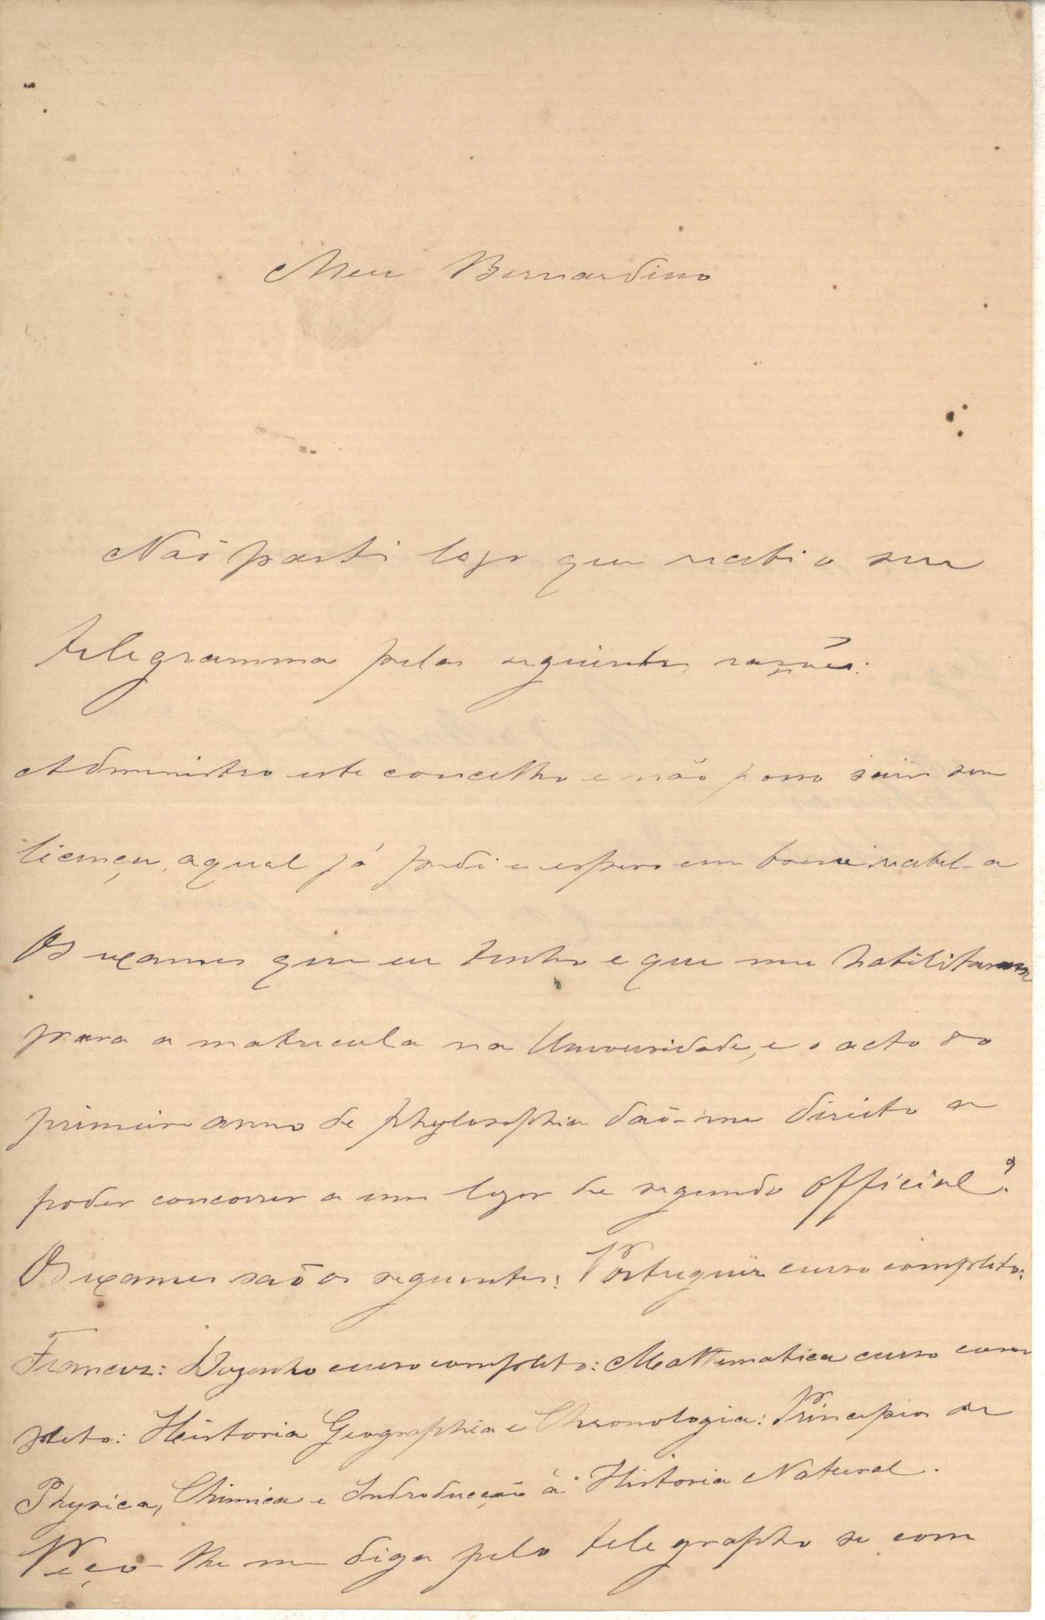 Meu Bernardino
Naõ parti logo que recebi o seu
telegramma pelas seguintes rasões:
Administro este concelho e não posso saïr sem
licença, a qual já pedi e espero em breve recebel-a
Os exames que eu tenho e que me habilitaram
para a matricula na Universidade, e o acto do
primeiro anno de phylosophia daõ-me direito a
poder concorrer a um logar de segundo official?
Os exames saõ os seguintes: Portuguez curso completo:
Francez: Dezenho curso completo: Mathematica curso com
pleto: Historia Geographia e Chronologia: Principios de
Physica, Chimica e Introducção á Historia Natural.
Peço-lhe me diga pelo telegrapho se com